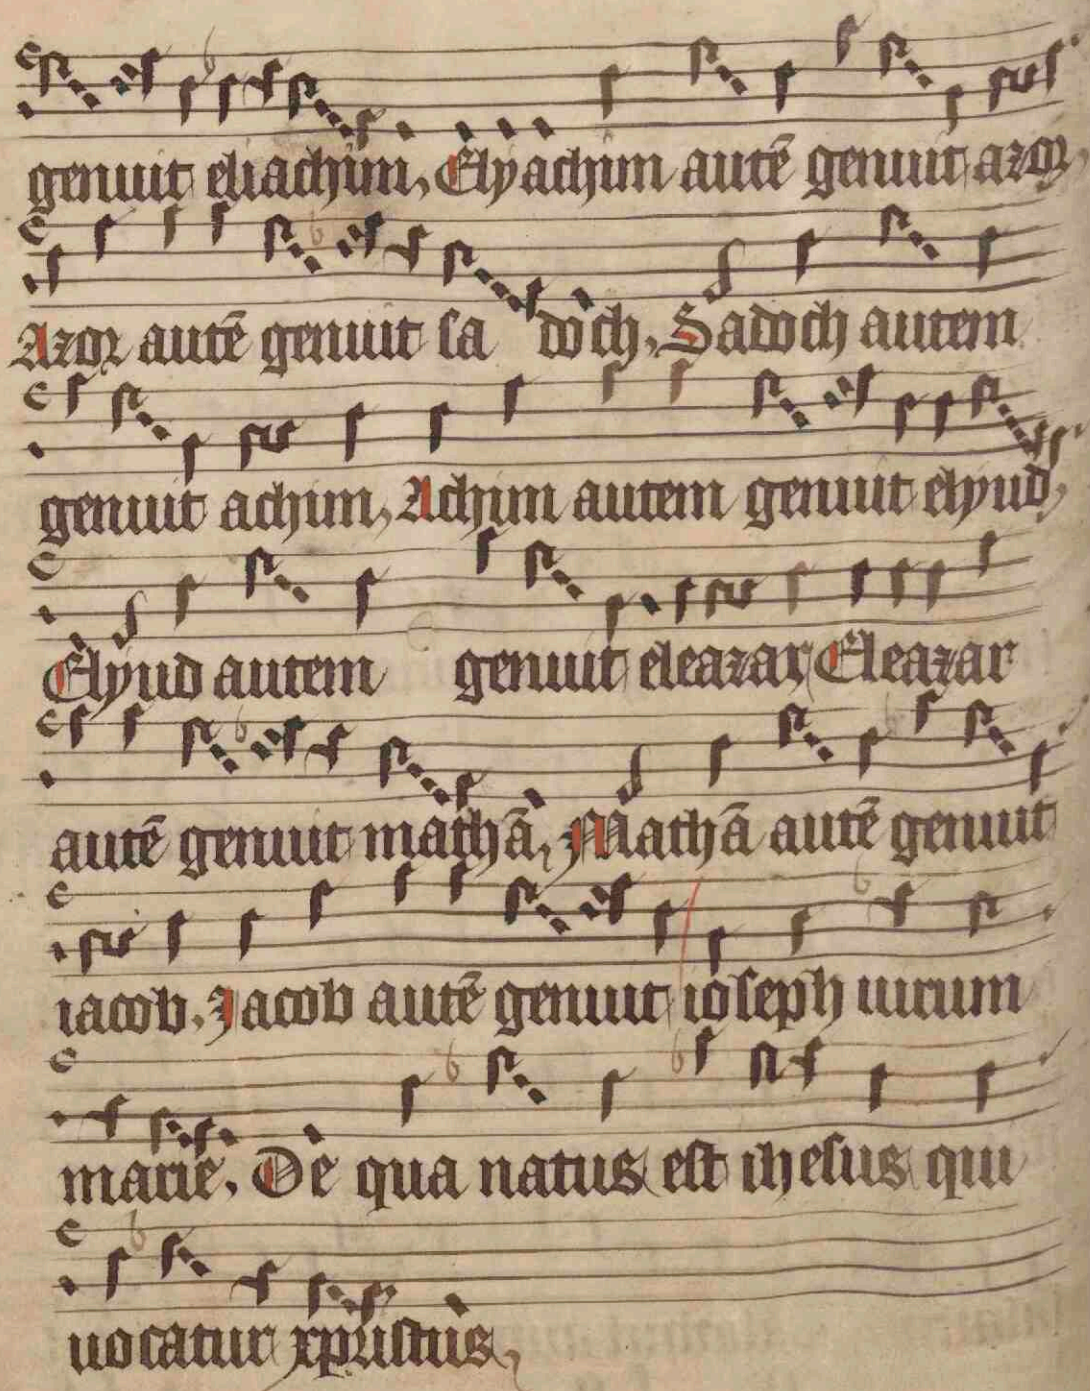 genuit eliachim, Elyachim autē genuit azor
Azor autē genuit sa doch, Sadoch autem
genuit achim, Achim autem genuit elyud,
Elyud autem genuit eleazar, Eleazar
autē genuit mathā, Mathā autē genuit
iacob. Jacob autē genuit ioseph uirum
marie, De qua natus est ihesus qui
uocatur xpristus,